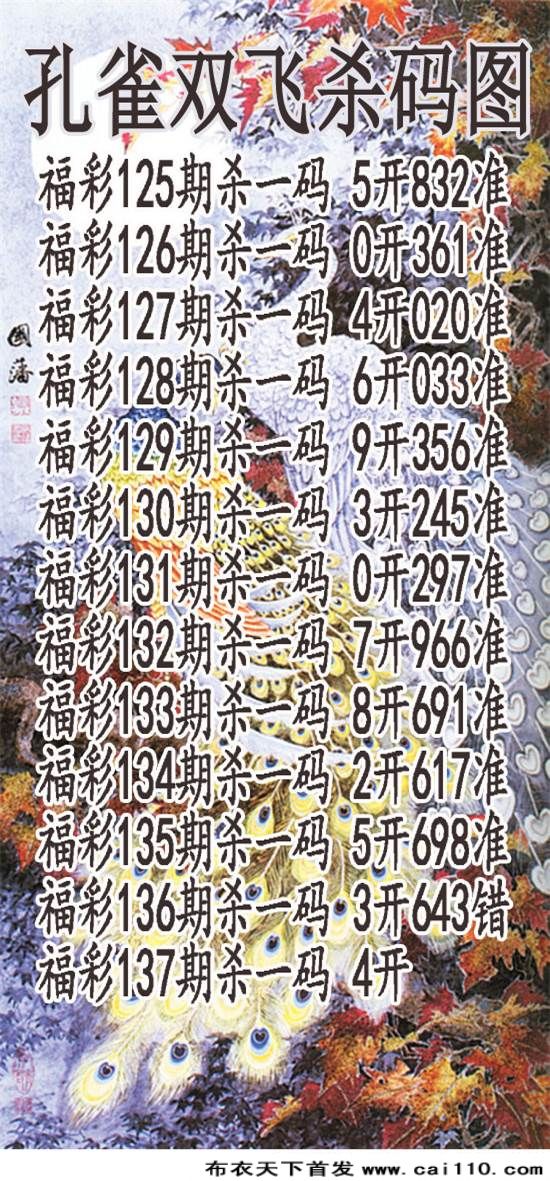 孔雀双飞杀码图
福彩125期杀一码 5开832准
福彩126期杀一码 0开361准
福彩127期杀一码 4开020准
福彩128期杀一码 6开033准
福彩129期杀一码 9开356准
福彩130期杀一码 3开245准
福彩131期杀一码 0开297准
福彩132期杀一码 7开966准
福彩133期杀一码 8开691准
福彩134期杀一码 2开617准
福彩135期杀一码 5开698准
福彩136期杀一码 3开643错
福彩137期杀一码 4开
國藩
布衣天下首发 www.cai110.com